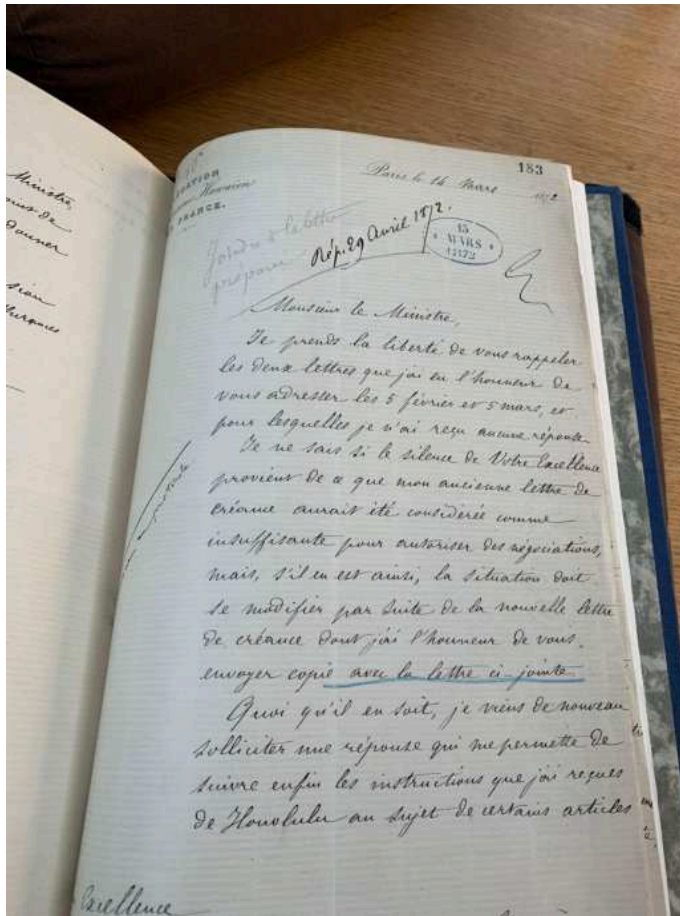 183
Hawaien
FRANCE.
Paris le 14 Mars 1872
Joindre à lettre
Rép. 29 Avril 1872.
15
MARS
1872
Monsieur le Ministre,
Je prends la liberté de vous rappeler
les deux lettres que j'ai eu l'honneur de
vous adresser les 5 février et 5 mars, et
pour lesquelles je n'ai reçu aucune réponse.
Je ne sais si le silence de Votre Excellence
provient de ce que mon ancienne lettre de
créance aurait été considérée comme
insuffisante pour autoriser des négociations,
mais, s'il en est ainsi, la situation doit
se modifier par suite de la nouvelle lettre
de créance dont j'ai l'honneur de vous
envoyer copie avec la lettre ci-jointe.
Quoi qu'il en soit, je viens de nouveau
solliciter une réponse qui me permette de
suivre enfin les instructions que j'ai reçues
de Honolulu au sujet de certains articles
Ministre,
de
donner
Excellence